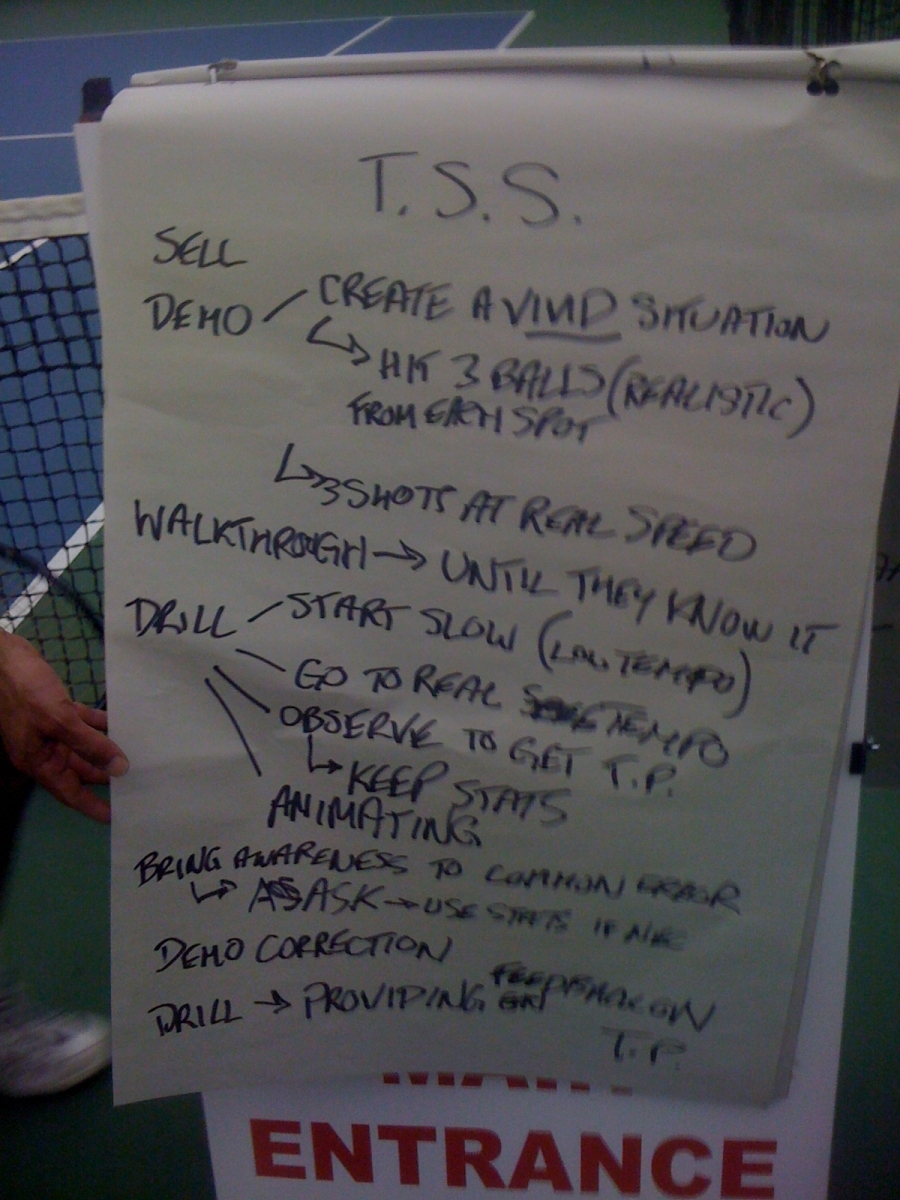 T.S.S.
SELL
DEMO CREATE A VIVID SITUATION
HIT 3 BALLS (REALISTIC)
FROM EACH SPOT
3 SHOTS AT REAL SPEED
WALKTHROUGH → UNTIL THEY KNOW IT
DRILL START SLOW (LOW TEMPO)
GO TO REAL TEMPO
OBSERVE TO GET T.P.
KEEP STATS
ANIMATING
BRING AWARENESS TO COMMON ERROR
ASK → USE STATS IF
DEMO CORRECTION
DRILL → PROVIDING FEEDBACK ON
T.P.
MAIN
ENTRANCE